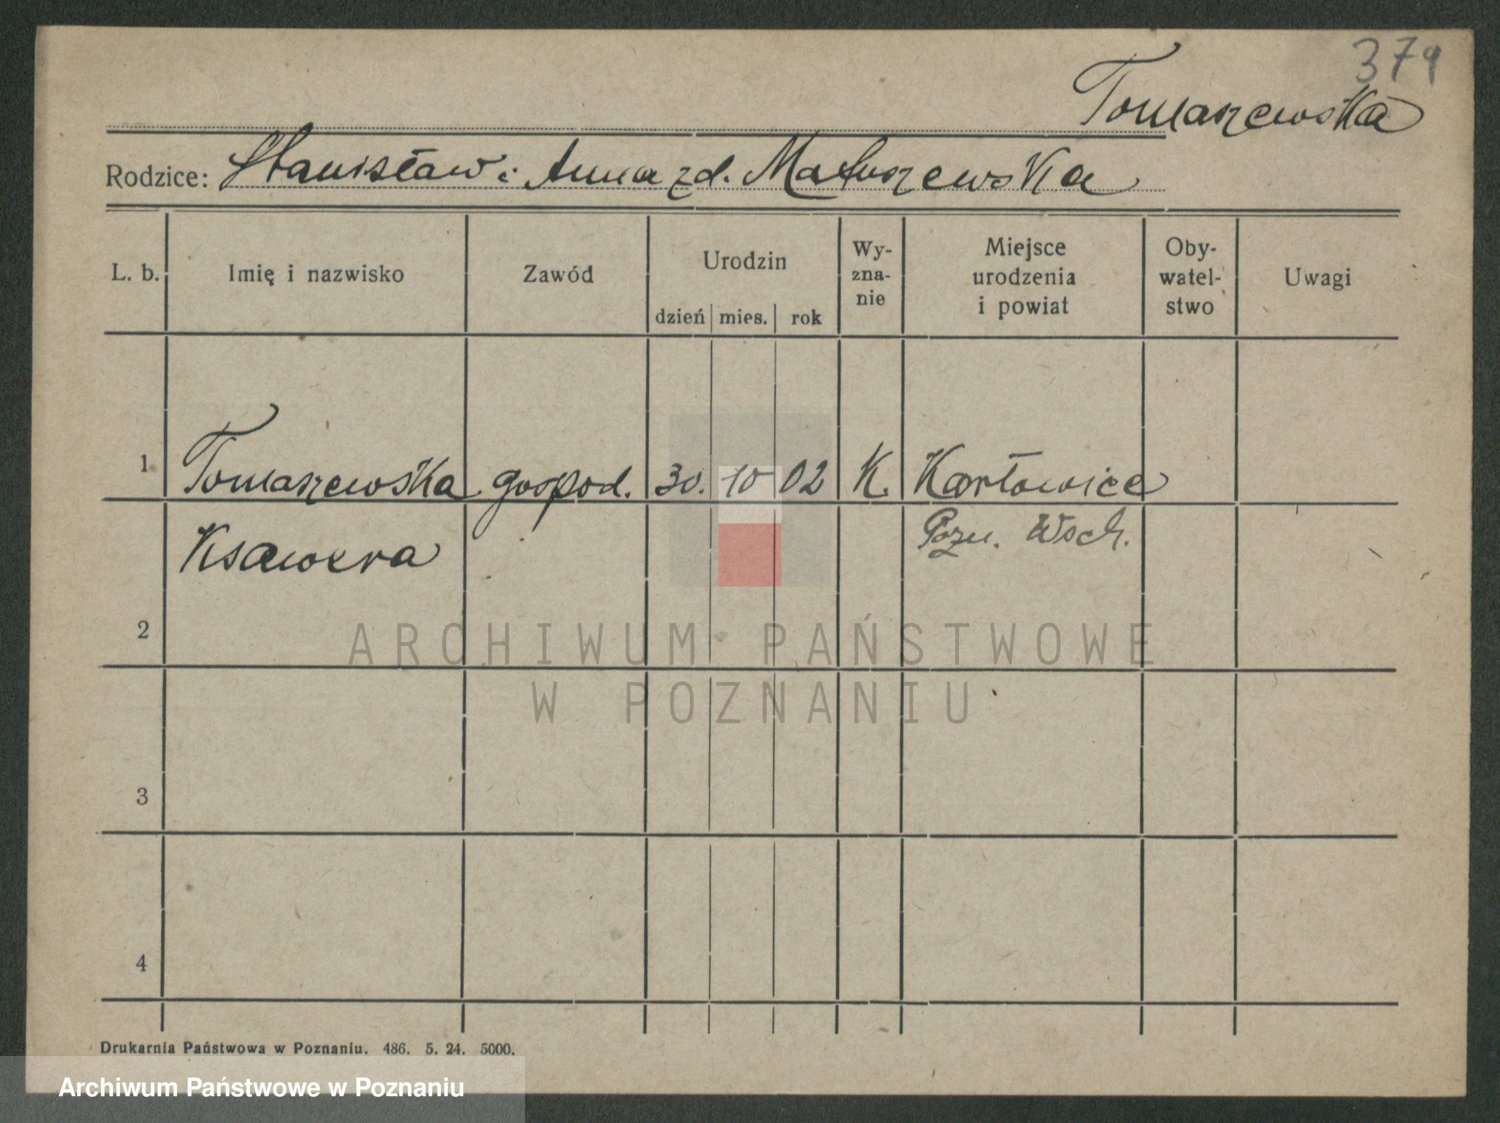 379
Tomaszewska
Rodzice: Stanisław i Anna zd. Matuszewska
L. b. Imię i nazwisko Zawód Urodzin dzień mies. rok Wy-zna-nie Miejsce urodzenia i powiat Oby-watel-stwo Uwagi
1 Tomaszewska gospod. 30. 10 02 K. Karłowice
Ksawera Pozn. Wsch.
2
ARCHIWUM PAŃSTWOWE
W POZNANIU
3
4
Drukarnia Państwowa w Poznaniu. 486. 5. 24. 5000.
Archiwum Państwowe w Poznaniu